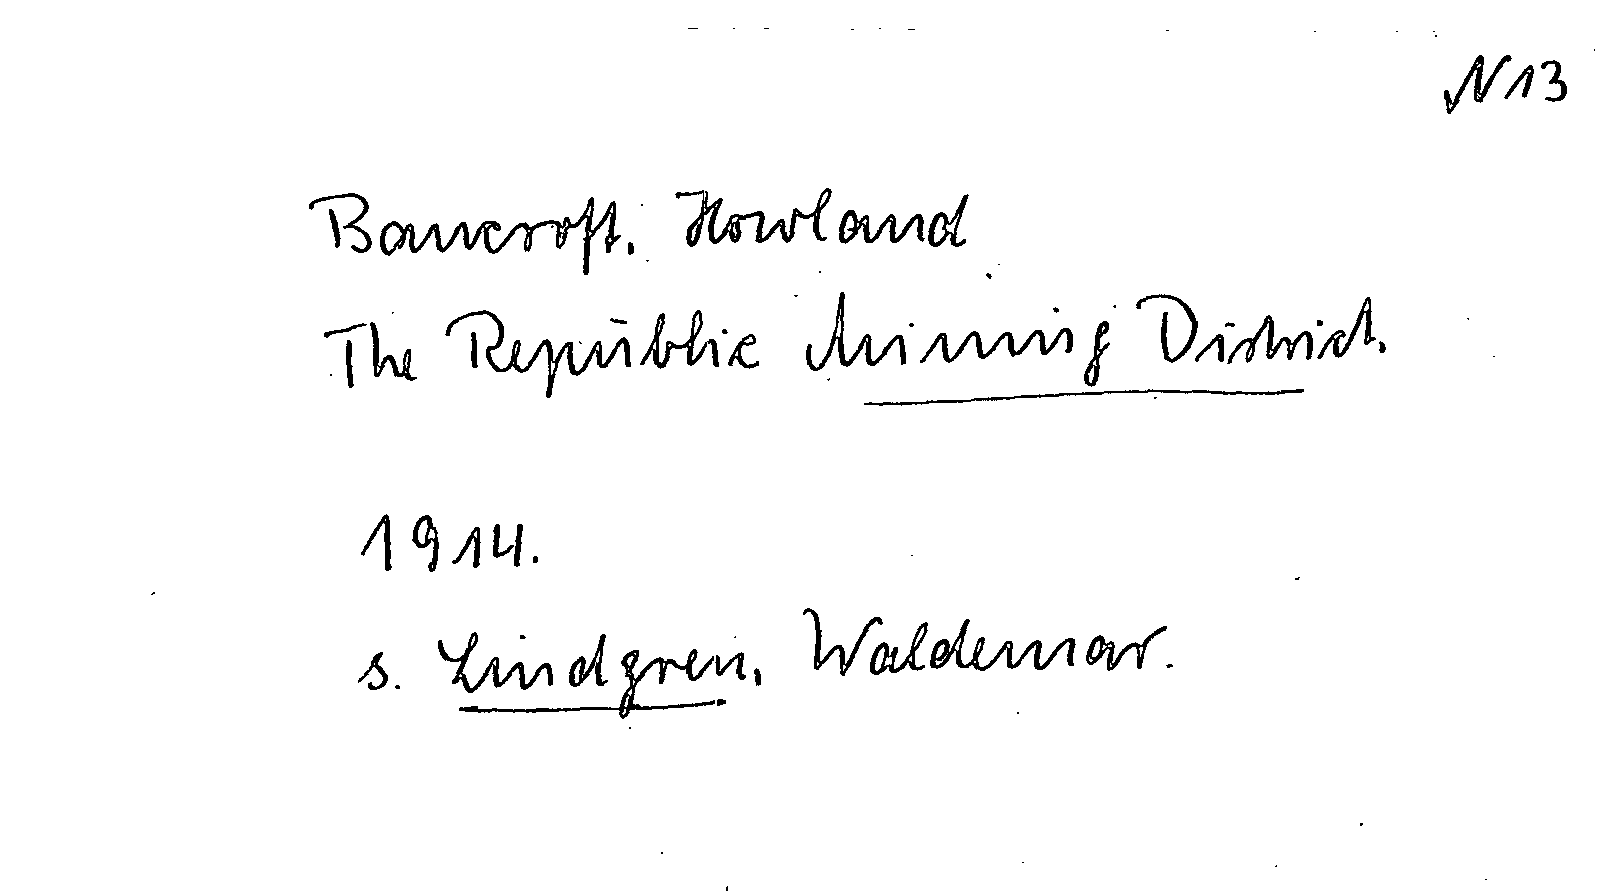 N 13
Bancroft. Howland
The Republic Mining District.
1914.
s. Lindgren, Waldemar.